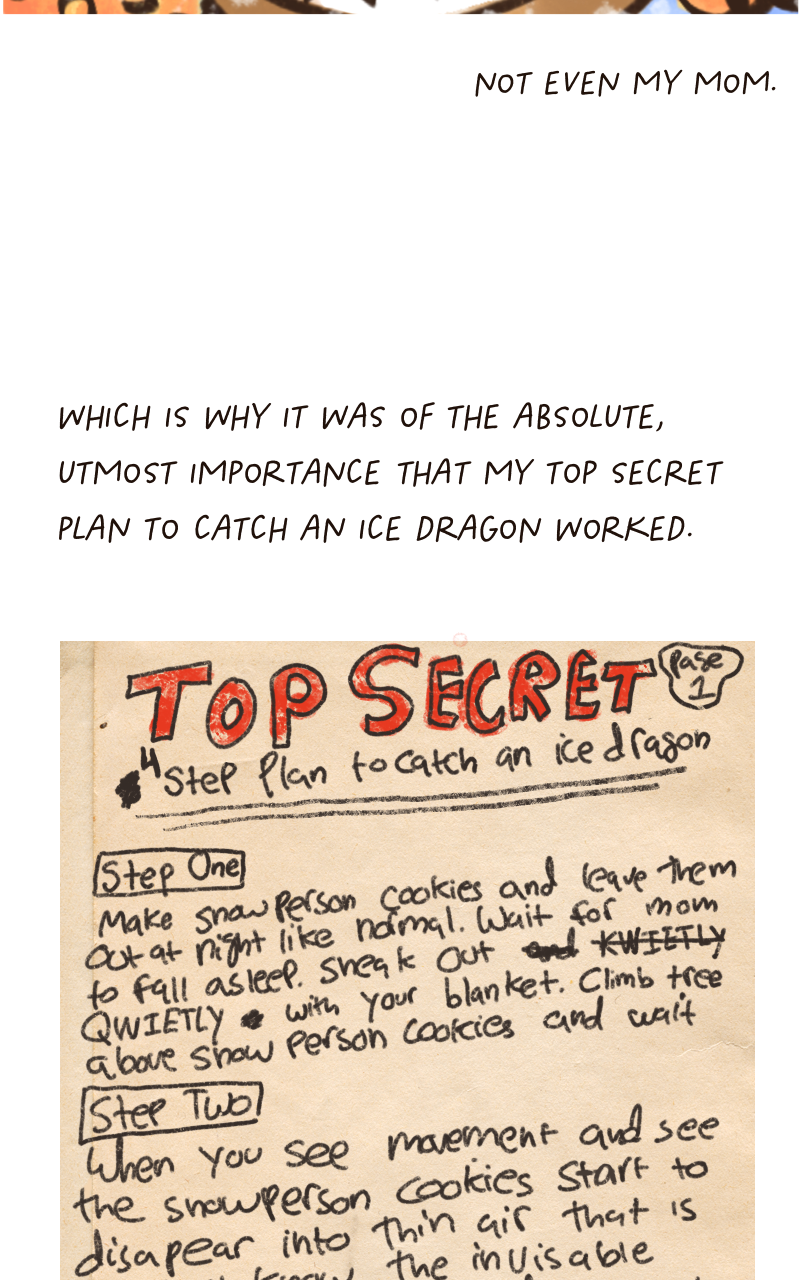 NOT EVEN MY MOM.
WHICH IS WHY IT WAS OF THE ABSOLUTE,
UTMOST IMPORTANCE THAT MY TOP SECRET
PLAN TO CATCH AN ICE DRAGON WORKED.
TOP SECRET
Page
1
4 Step Plan to catch an ice dragon
Step One
Make snow person cookies and leave them
out at night like normal. Wait for mom
to fall asleep. Sneak out and KWIETLY
QWIETLY with your blanket. Climb tree
above snow person cookies and wait
Step Two
When you see movement and see
the snowperson cookies start to
disapear into thin air that is
the invisable